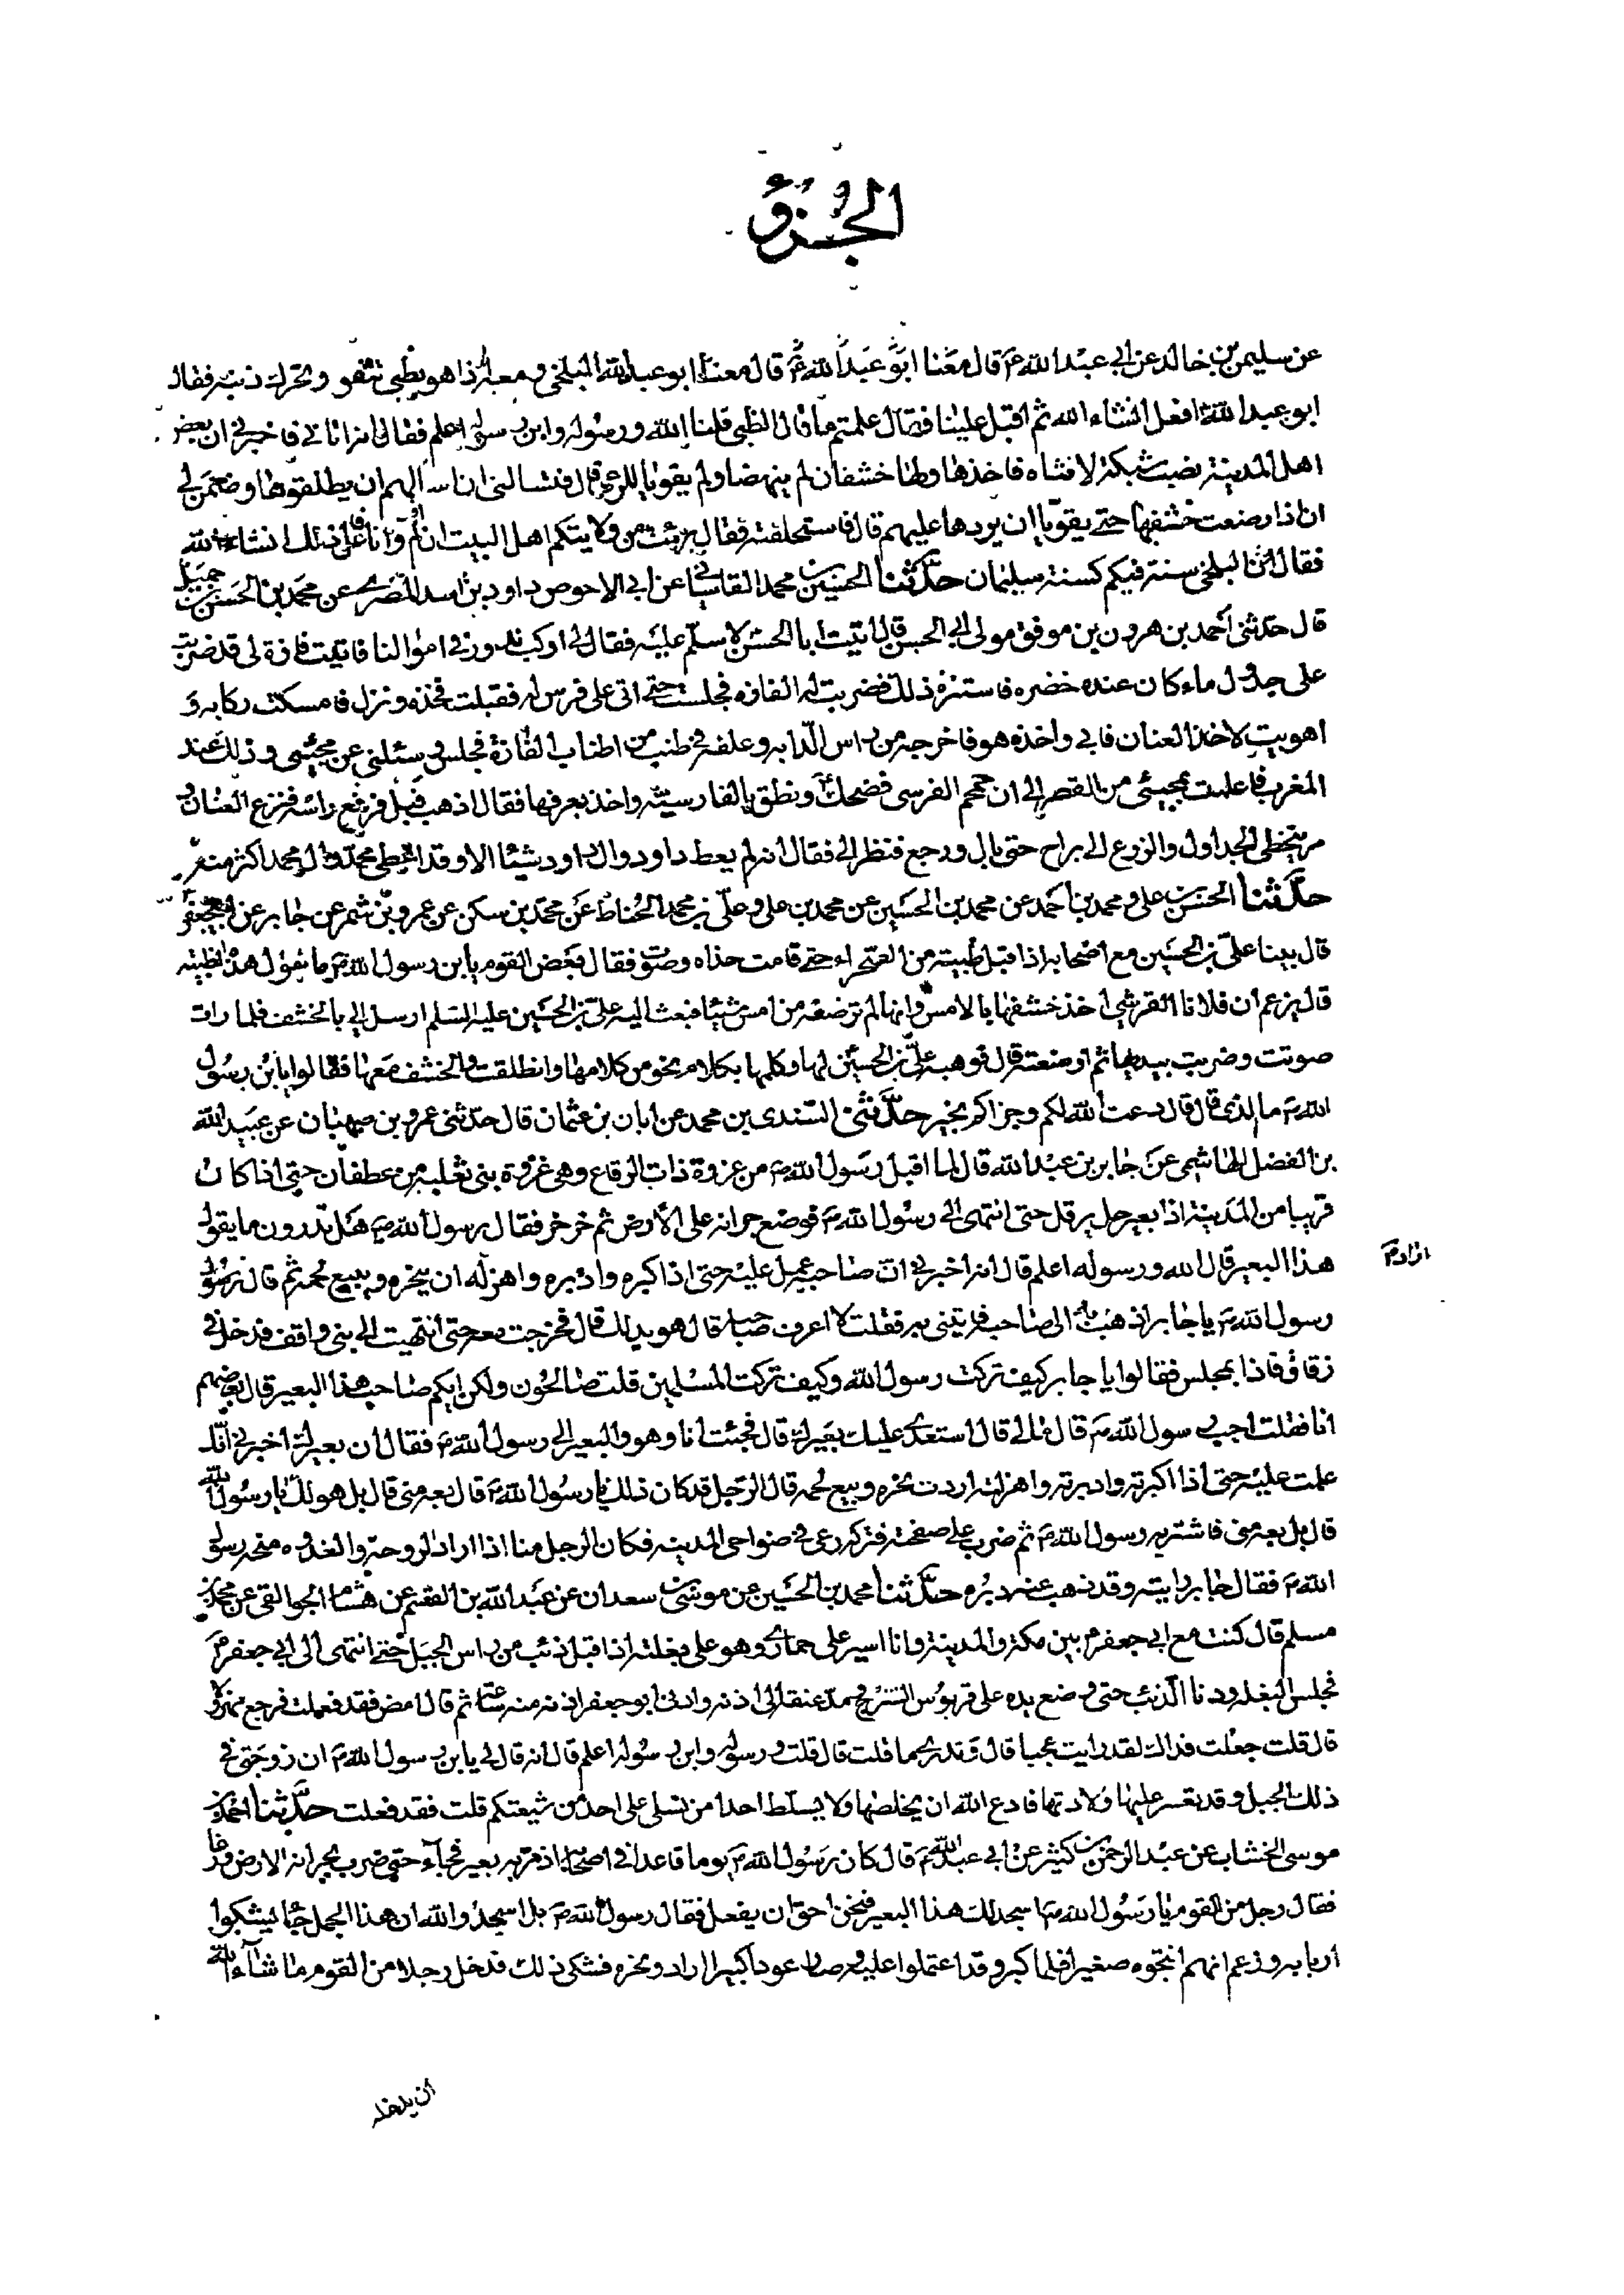 الجُزؤ
عن سليمن بن خالد عن ابي عبد الله ع قال معنا ابو عبد الله البلخي ومعه اذا هو بظبي تثغو وتحرك ذنبه فقال
ابو عبد الله افعل انشاء الله ثم اقبل علينا فقال علمتم ما قال الظبي قلنا الله ورسوله وابن رسوله اعلم فقال انه اتاني فاخبرني ان بعض
اهل المدينة نصبت شبكة لانثاه فاخذها ولها خشفان لم ينهضا ولم يقويا للرعي قال فتسالني ان اسالهم ان يطلقوها وضمن لي
ان اذا رضعت خشفيها حتى يقويا ان يردها عليهم قال فاستحلفته فقال برئت من ولايتكم اهل البيت ان لم اف وانا فاعل ذلك انشاء الله
فقال البلخي سنة فيكم كسنة سليمان حدثنا الحسين بن محمد القاساني عن ابي الاحوص داود بن اسد المصري عن محمد بن الحسن بن جميل
قال حدثني احمد بن هرون بن موفق مولى ابي الحسن قال اتيت ابا الحسن لاسلم عليه فقال لي اركب ندور في اموالنا فاتيت فازة لي قد ضربت
على جدول ماء كان عنده خضره فاستنزه ذلك فضربت له الفازه فجلست حتى اتى على فرس له فقبلت فخذه ونزل فامسكت ركابه و
اهويت لاخذ العنان فابى واخذه هو فاخرجه من راس الدابه وعلقه في طنب من اطناب الفازة فجلس وسئلني عن مجيئي وذلك عند
المغرب فاعلمت بمجيئي من القصر الى ان حمحم الفرس فضحك ع ونطق بالفارسية واخذ بعرفها فقال اذهب فبل فرفع راسه فنزع العنان و
مر يتخطى الجداول والزرع الى براح حتى بال ورجع فنظر الي فقال انه لم يعط داود وال داود شيئا الا وقد اعطي محمد وال محمد اكثر منه
حدثنا الحسن بن علي ومحمد بن احمد عن محمد بن الحسين عن محمد بن علي وعلي بن محمد الحناط عن محمد بن سكن عن عمرو بن شمر عن جابر عن ابي جعفر
قال بينا علي بن الحسين مع اصحابه اذا قبل ظبية من الصحراء حتى قامت حذاه وصوتت فقال بعض القوم يا بن رسول الله ص ما تقول هذه الظبيه
قال يزعم ان فلانا القرشي اخذ خشفها بالامس وانها لم ترضعه من امس شيئا فبعث اليه علي بن الحسين عليه السلم ارسل الي بالخشف فلما رات
صوتت وضربت بيديها ثم ارضعته قال فوهبه علي بن الحسين لها وكلمها بكلام نحو من كلامها وانطلقت والخشف معها فقالوا يا بن رسول
الله ص ما الذي قال قال دعت الله لكم وجزاكم بخير حدثني السندي بن محمد عن ابان بن عثمان قال حدثني عمرو بن صهبان عن عبيد الله
بن الفضل الهاشمي عن جابر بن عبد الله قال لما اقبل رسول الله ص من غزوة ذات الرقاع وهي غزوة بني ثعلبه من غطفان حتى اذا كان
قريبا من المدينة اذا بعير حل يرقل حتى انتهى الى رسول الله ص فوضع جرانه على الارض ثم خرخر فقال رسول الله ص هل تدرون ما يقول
هذا البعير قال الله ورسوله اعلم قال انه اخبرني ان صاحبه عمل عليه حتى اذا كبره وادبره واهزله ان ينحره ويبيع لحمه ثم قال رسول
اراد م
رسول الله ص يا جابر اذهب به الى صاحبه فايتني به فقلت لا اعرف صاحبه قال هو يدلك قال فخرجت معه حتى انتهيت الى بني واقف فدخل في
زقاق فاذا بمجلس فقالوا يا جابر كيف تركت رسول الله وكيف تركت المسلمين قلت صالحون ولكن ايكم صاحب هذا البعير قال بعضهم
انا فقلت اجب رسول الله ص قال مالي قال استعدى عليك بعيرك قال فجئت انا وهو والبعير الى رسول الله ص فقال ان بعيرك اخبرني انك
عملت عليه حتى اذا اكبرته وادبرته واهزلته اردت نحره وبيع لحمه قال الرجل قد كان ذلك يا رسول الله ص قال بعه مني قال بل هو لك يا رسول الله
قال بل بعه مني فاشتريه رسول الله ص ثم ضرب على صفحته فتركه رعى في ضواحي المدينه فكان الرجل منا اذا اراد الروحة والغدوه منحه رسول
الله ص فقال جابر رايته وقد ذهب عنه دبره حدثنا محمد بن الحسين عن موسى بن سعدان عن عبد الله بن القسم عن هشام الجواليقي عن محمد بن
مسلم قال كنت مع ابي جعفر م بين مكة والمدينة وانا اسير على حماري وهو على بغلته اذا قبل ذئب من راس الجبل حتى انتهى الى ابي جعفر م
فجلس البغله ودنا الذئب حتى وضع يده على قربوس السرج ومد عنقه الى اذنه وادنى ابو جعفر اذنه منه ساعة ثم قال امض فقد فعلت فرجع مهرولا
قال قلت جعلت فداك لقد رايت عجبا قال وتدري ما قلت قال قلت ورسوله وابن رسوله اعلم قال انه قال لي يا بن رسول الله ص ان زوجتي في
ذلك الجبل وقد تعسر عليها ولادتها فادع الله ان يخلصها ولا يسلط احدا من نسلي على احد من شيعتكم قلت فقد فعلت حدثنا احمد بن
موسى الخشاب عن عبد الرحمن بن كثير عن ابي عبد الله ع قال كان رسول الله ص يوما قاعدا في اصحابه اذ مر به بعير فجاء حتى ضرب بجرانه الارض ورغا
فقال رجل من القوم يا رسول الله ص اسجد لك هذا البعير فنحن احق ان يفعل فقال رسول الله ص بل اسجدوا لله ان هذا الجمل جاء يشكوا
اربابه وزعم انهم انتجوه صغيرا فلما كبر وقد اعتملوا عليه وصار عودا كبيرا ارادو نحره فشكى ذلك فدخل رجلا من القوم ما شاء الله
ان يدخله